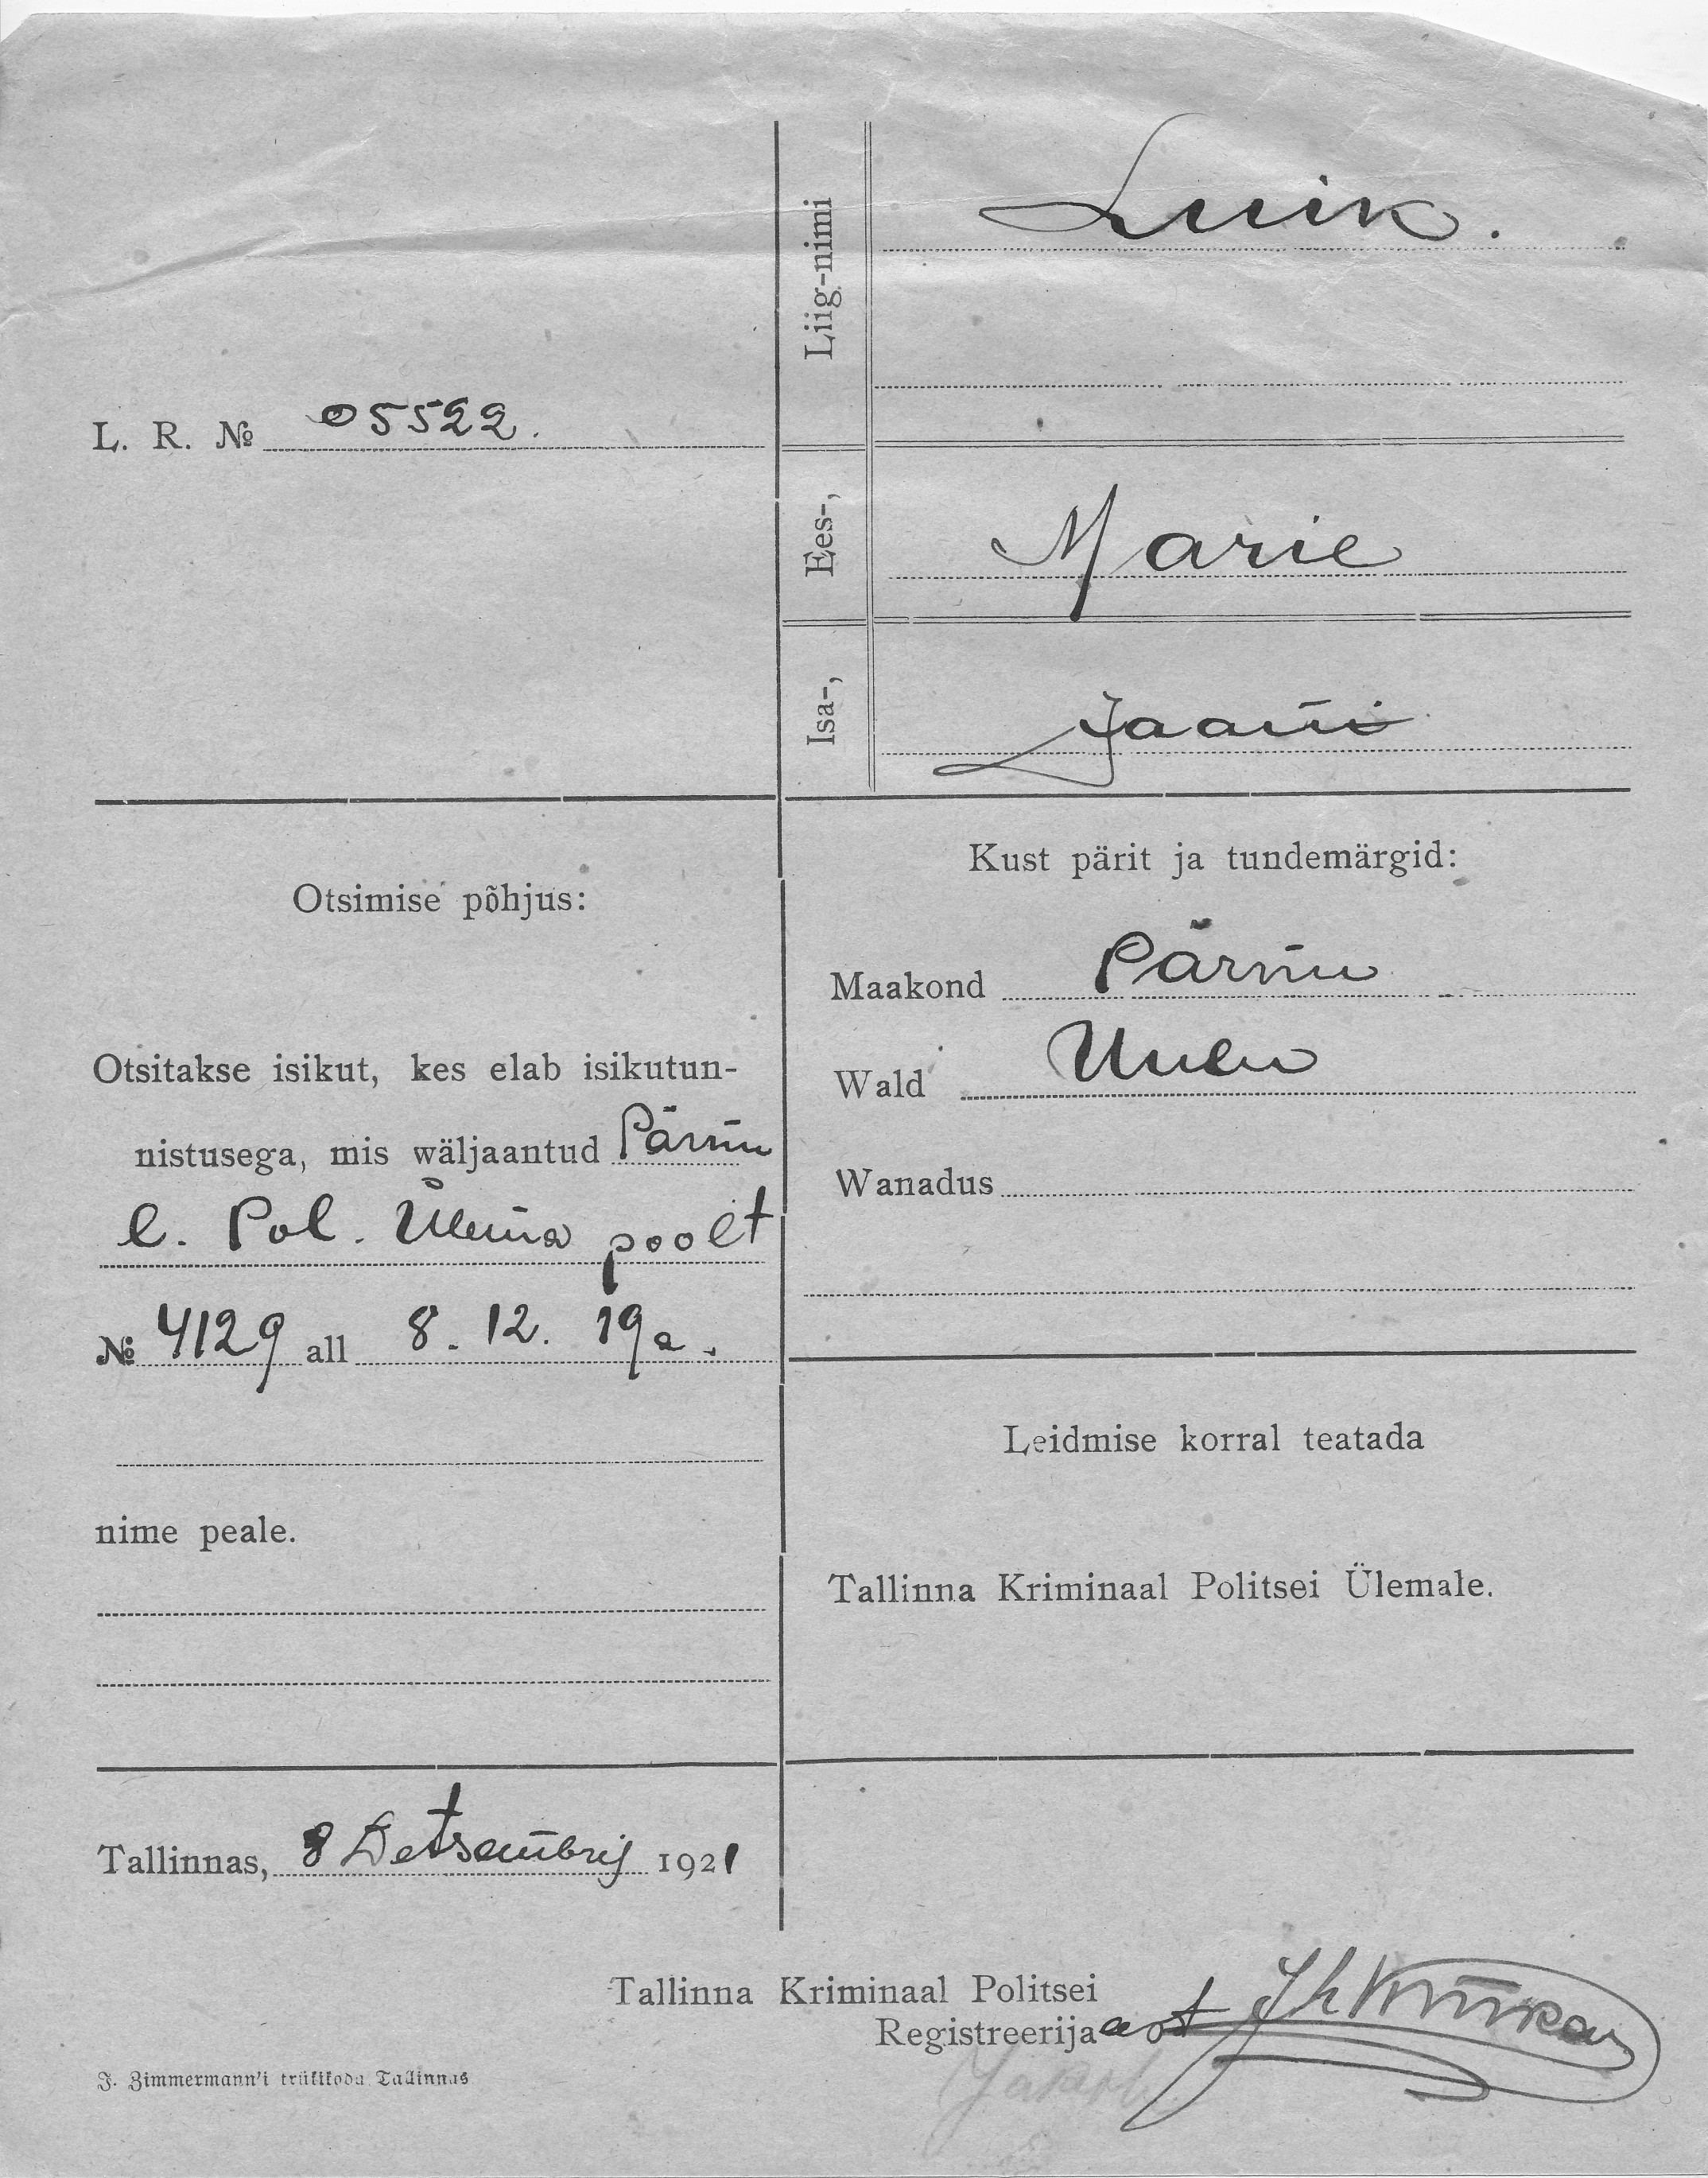 Liig-nimi Luik.
L. R. № 05522.
Ees-, Marie
Isa-, Jaani
Otsimise põhjus:
Otsitakse isikut, kes elab isikutun-
nistusega, mis wäljaantud Pärnu
l. Pol. Ülema poolt
№ 4129 all 8. 12. 19 a.
nime peale.
Tallinnas, 8 Detsembril 1921
Kust pärit ja tundemärgid:
Maakond Pärnu
Wald Uulu
Wanadus
Leidmise korral teatada
Tallinna Kriminaal Politsei Ülemale.
Tallinna Kriminaal Politsei
Registreerija
J. Zimmermann'i trükikoda Tallinnas